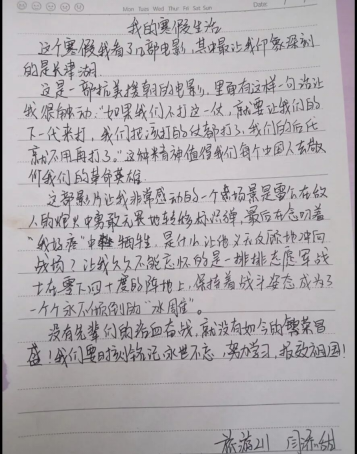 Mon Tue Wed Thu Fri Sat Sun
我的寒假生活
这个寒假我看了几部电影，其中最让我印象深刻
的是长津湖.
这是一部抗美援朝的电影，里面有这样一句话让
我很触动."如果我们不打这一仗，就要让我们的
下一代来打，我们把该打的仗都打了，我们的后代
就不用再打了。"这种精神值得我们每个中国人去敬
仰我们的革命英雄.
这部影片让我非常感动的一个场景是雷公在敌
人的炮火中勇敢无畏地转移标识弹，最后在念叨着
"我好疼"中牺牲，是什么让他义无反顾地冲向
战场？让我久久不能忘怀的是一排排志愿军战
士在零下四十度的阵地上，保持着战斗姿态成为了
一个个永不倾倒的"冰雕"。
没有先辈们的浴血奋战，就没有如今的繁荣昌
盛！我们要时刻铭记，永世不忘，努力学习，报效祖国！
旅游211 闫添甜